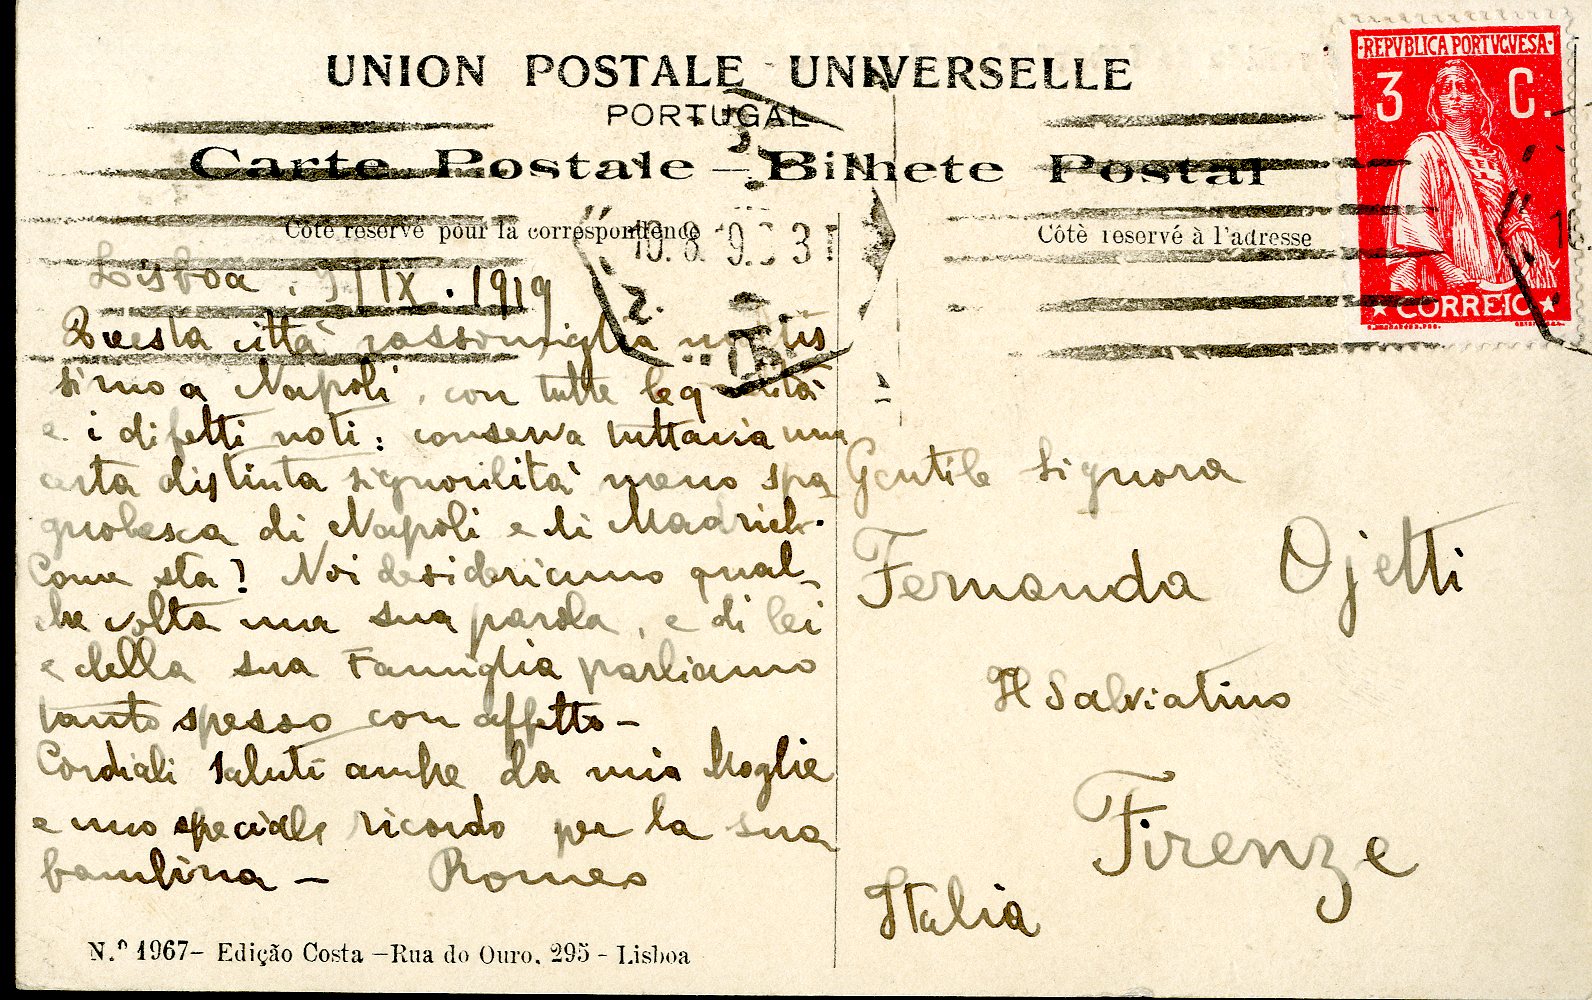 UNION POSTALE UNIVERSELLE
PORTUGAL
Carte Postale – Bilhete Postal
Côté réservé pour la correspondence
Côtè reservé à l'adresse
REPVBLICA PORTVGVESA
3 C.
CORREIO
Lisboa, 9 | IX . 1919
Questa città rassomiglia moltis
simo a Napoli, con tutte le qualità
e i difetti noti: conserva tuttavia una
certa distinta signorilità meno spa
gnolesca di Napoli e di Madrid.
Come sta? Noi desideriamo qual-
che volta una sua parola, e di lei
e della sua Famiglia parliamo
tanto spesso con affetto –
Cordiali saluti anche da mia Moglie
e uno speciale ricordo per la sua
bambina – Romeo
Gentile Signora
Fernanda Ojetti
Il Salviatino
Firenze
Italia
N.º 1967 – Edição Costa – Rua do Ouro, 295 - Lisboa